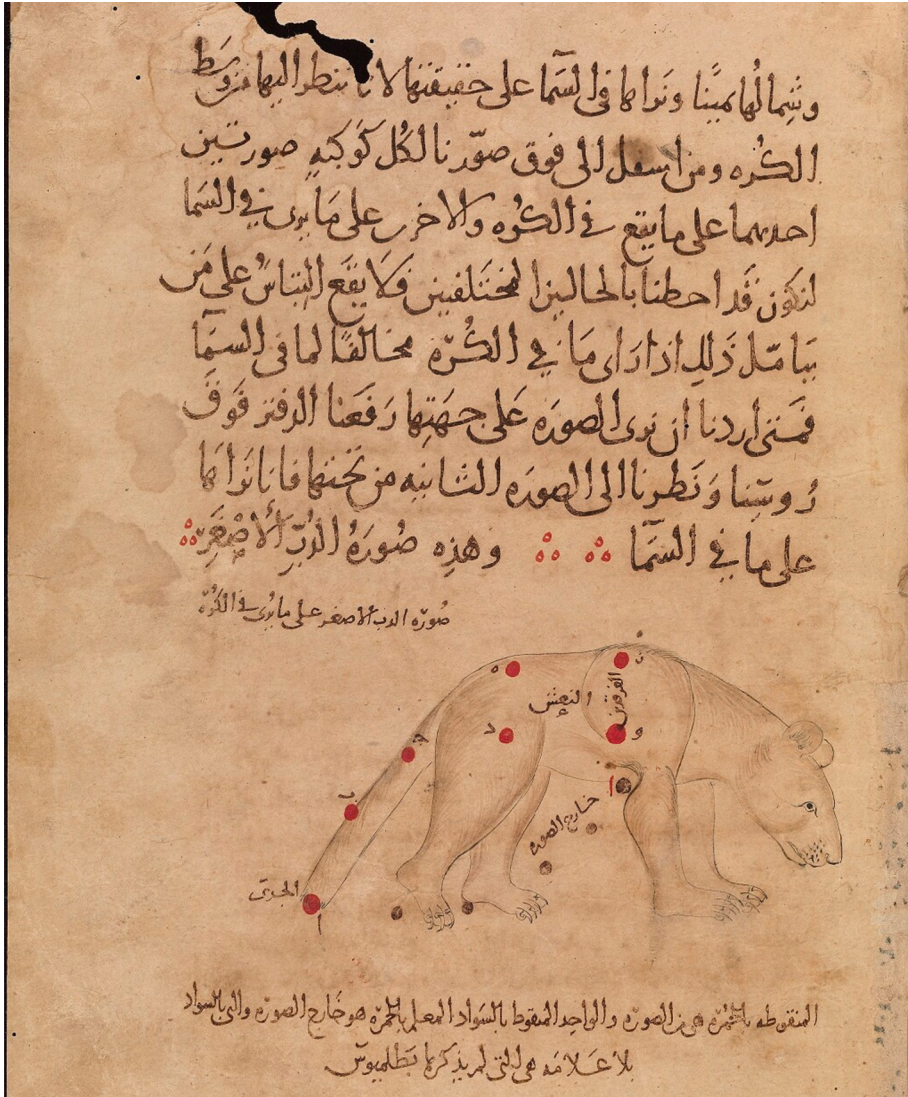 وشمالها يمينا ونراها في السما على حقيقتها لانا ننظر اليها من وسط
الكره ومن اسفل الى فوق صوّرنا لكل كوكبه صورتين
احديهما على ما يقع في الكره والاخرى على ما يرى في السما
لنكون قد احطنا بالحالين المختلفين فلا يقع التباس على من
يتامل ذلك اذا راى ما في الكره مخالفا لما في السما
فمتى اردنا ان نرى الصوره على جهتها رفعنا الدفتر فوق
رؤسنا ونظرنا الى الصوره الثانيه من تحتها فانا نراها
على ما في السما وهذه صوره الدب الاصغر
صوره الدب الاصغر على ما يرى في الكره
ز
ه
النعش
الفرقدين
د
و
ج
ا
خارج الصوره
ب
الجدى
ا
المنقوطه بالحمره هى من الصوره والواحد المنقوط بالسواد المعلم بالحمره هو خارج الصوره والتى بالسواد
بلا علامه هى التى لم يذكرها بطلميوس